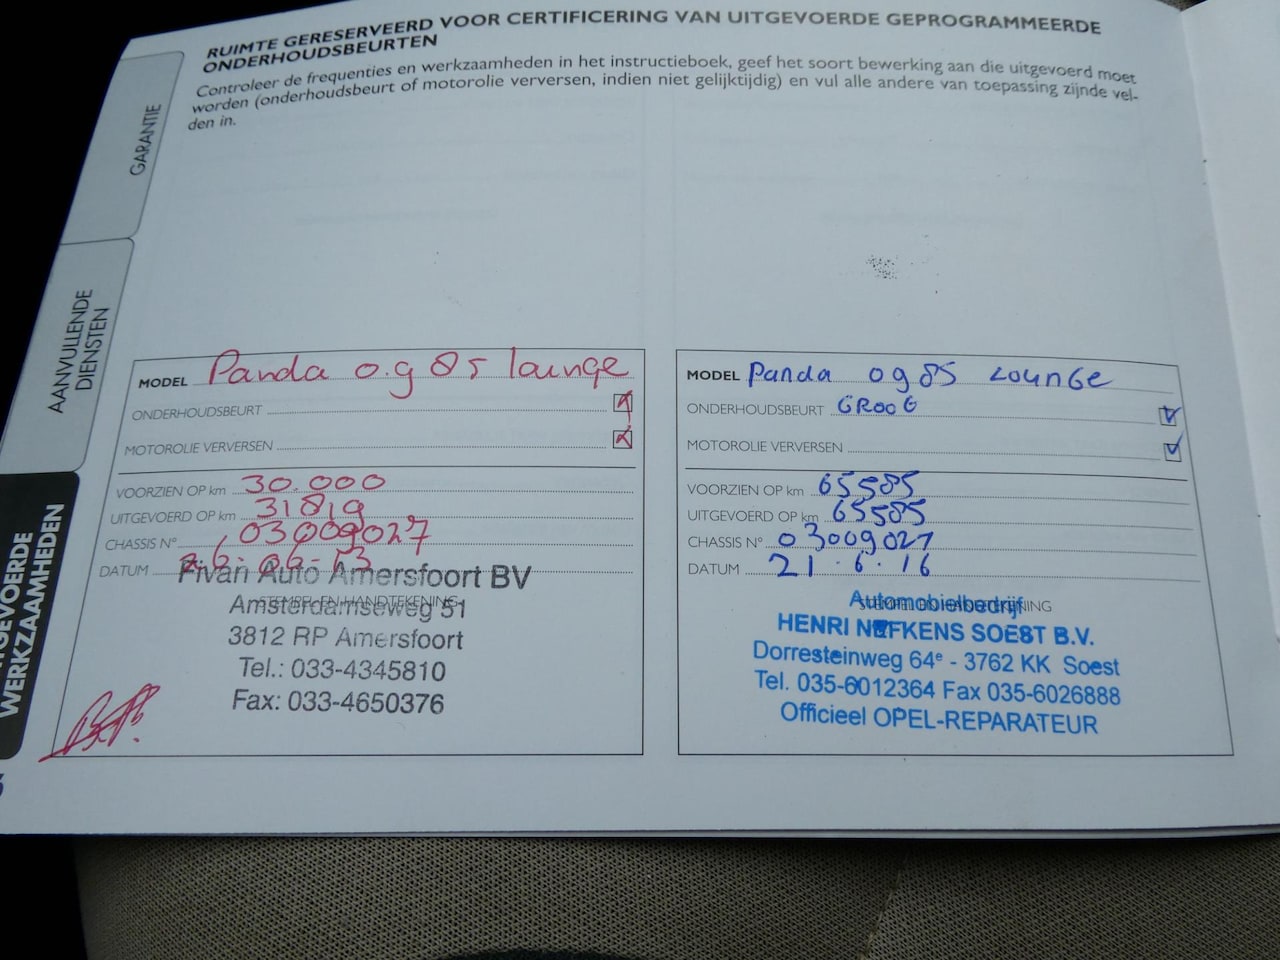 RUIMTE GERESERVEERD VOOR CERTIFICERING VAN UITGEVOERDE GEPROGRAMMEERDE
ONDERHOUDSBEURTEN
Controleer de frequenties en werkzaamheden in het instructieboek, geef het soort bewerking aan die uitgevoerd moet
worden (onderhoudsbeurt of motorolie verversen, indien niet gelijktijdig) en vul alle andere van toepassing zijnde vel-
den in.
GARANTIE
AANVULLENDE
DIENSTEN
GEVOERDE
WERKZAAMHEDEN
MODEL Panda 0.9 85 lounge
ONDERHOUDSBEURT
MOTOROLIE VERVERSEN
VOORZIEN OP km 30.000
UITGEVOERD OP km 31819
CHASSIS N° 03009027
DATUM 26-06-13
STEMPEL EN HANDTEKENING
Fivan Auto Amersfoort BV
Amsterdamseweg 51
3812 RP Amersfoort
Tel.: 033-4345810
Fax: 033-4650376
MODEL Panda 0985 LOUNGE
ONDERHOUDSBEURT GROOT
MOTOROLIE VERVERSEN
VOORZIEN OP km 65585
UITGEVOERD OP km 65585
CHASSIS N° 03009027
DATUM 21.6.16
Automobielbedrijf
HENRI NEFKENS SOEST B.V.
Dorresteinweg 64e - 3762 KK Soest
Tel. 035-6012364 Fax 035-6026888
Officieel OPEL-REPARATEUR